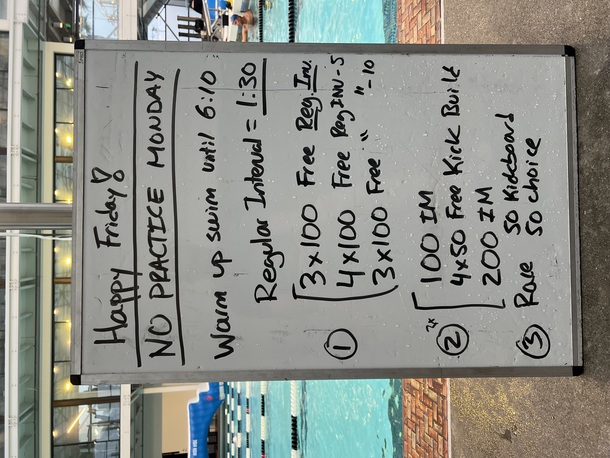 Happy Friday!
NO PRACTICE MONDAY
Warm up swim until 6:10
Regular Interval = 1:30
① 3x100 Free Reg. Inv.
4x100 Free Reg INV - 5
3x100 Free " " - 10
② 100 IM
4x50 Free Kick Build
200 IM
③ Race 50 Kickboard
50 choice